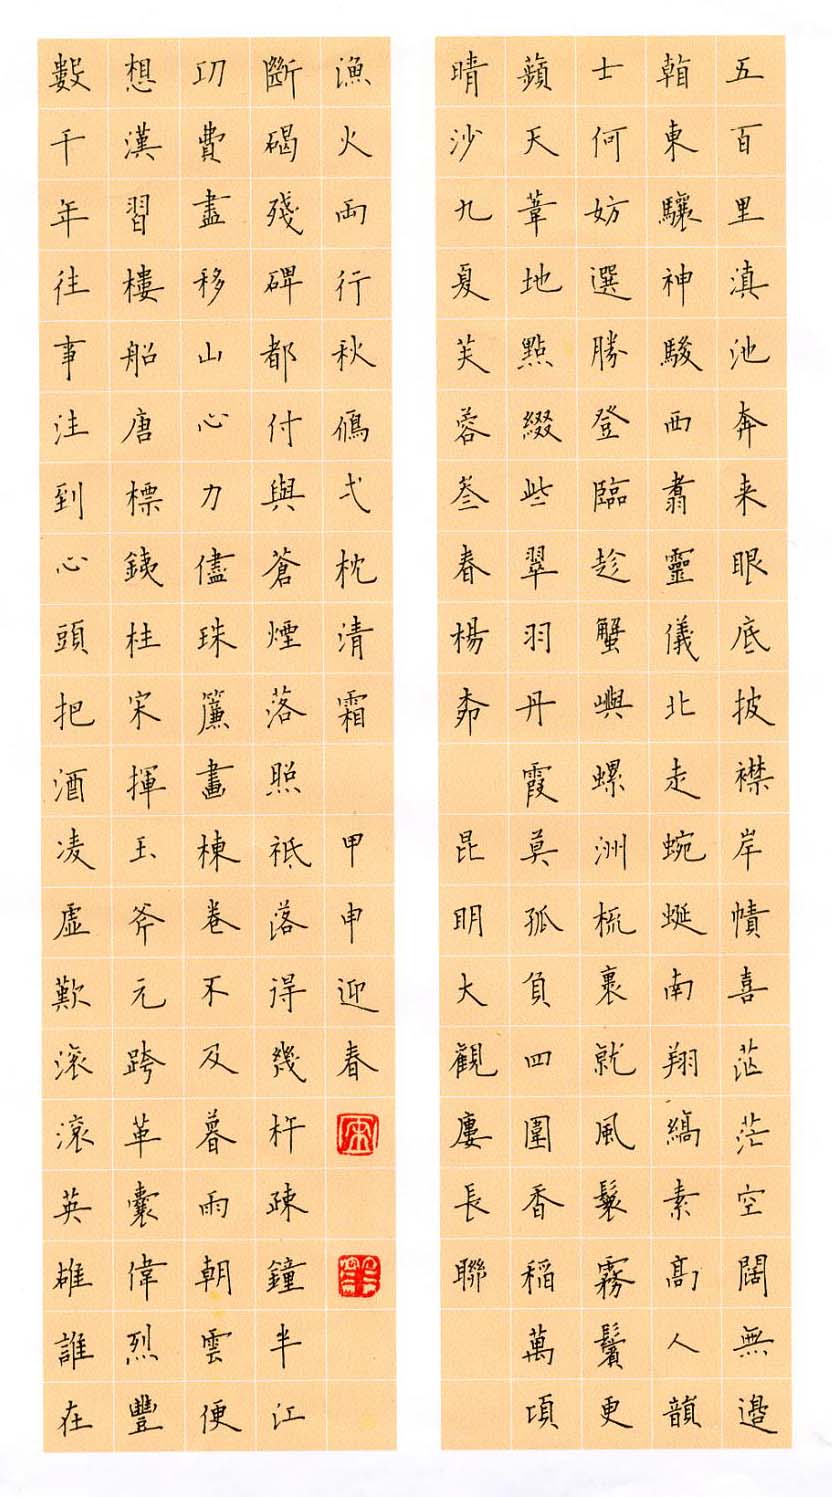 五百里滇池奔来眼底披襟岸幘喜茫茫空闊無邊
看東驤神駿西翥靈儀北走蜿蜒南翔縞素高人韻
士何妨選勝登臨趁蟹嶼螺洲梳裹就風鬟霧鬢更
蘋天葦地點綴些翠羽丹霞莫孤負四圍香稻萬頃
晴沙九夏芙蓉叁春楊柳
昆明大觀廔長聯
數千年往事注到心頭把酒凌虛歎滾滾英雄誰在
想漢習樓船唐標銕柱宋揮玉斧元跨革囊偉烈豐
功費盡移山心力儘珠簾畫棟卷不及暮雨朝雲便
斷碣殘碑都付與蒼煙落照祗落得幾杵疎鐘半江
漁火兩行秋鴈弌枕清霜
甲申迎春